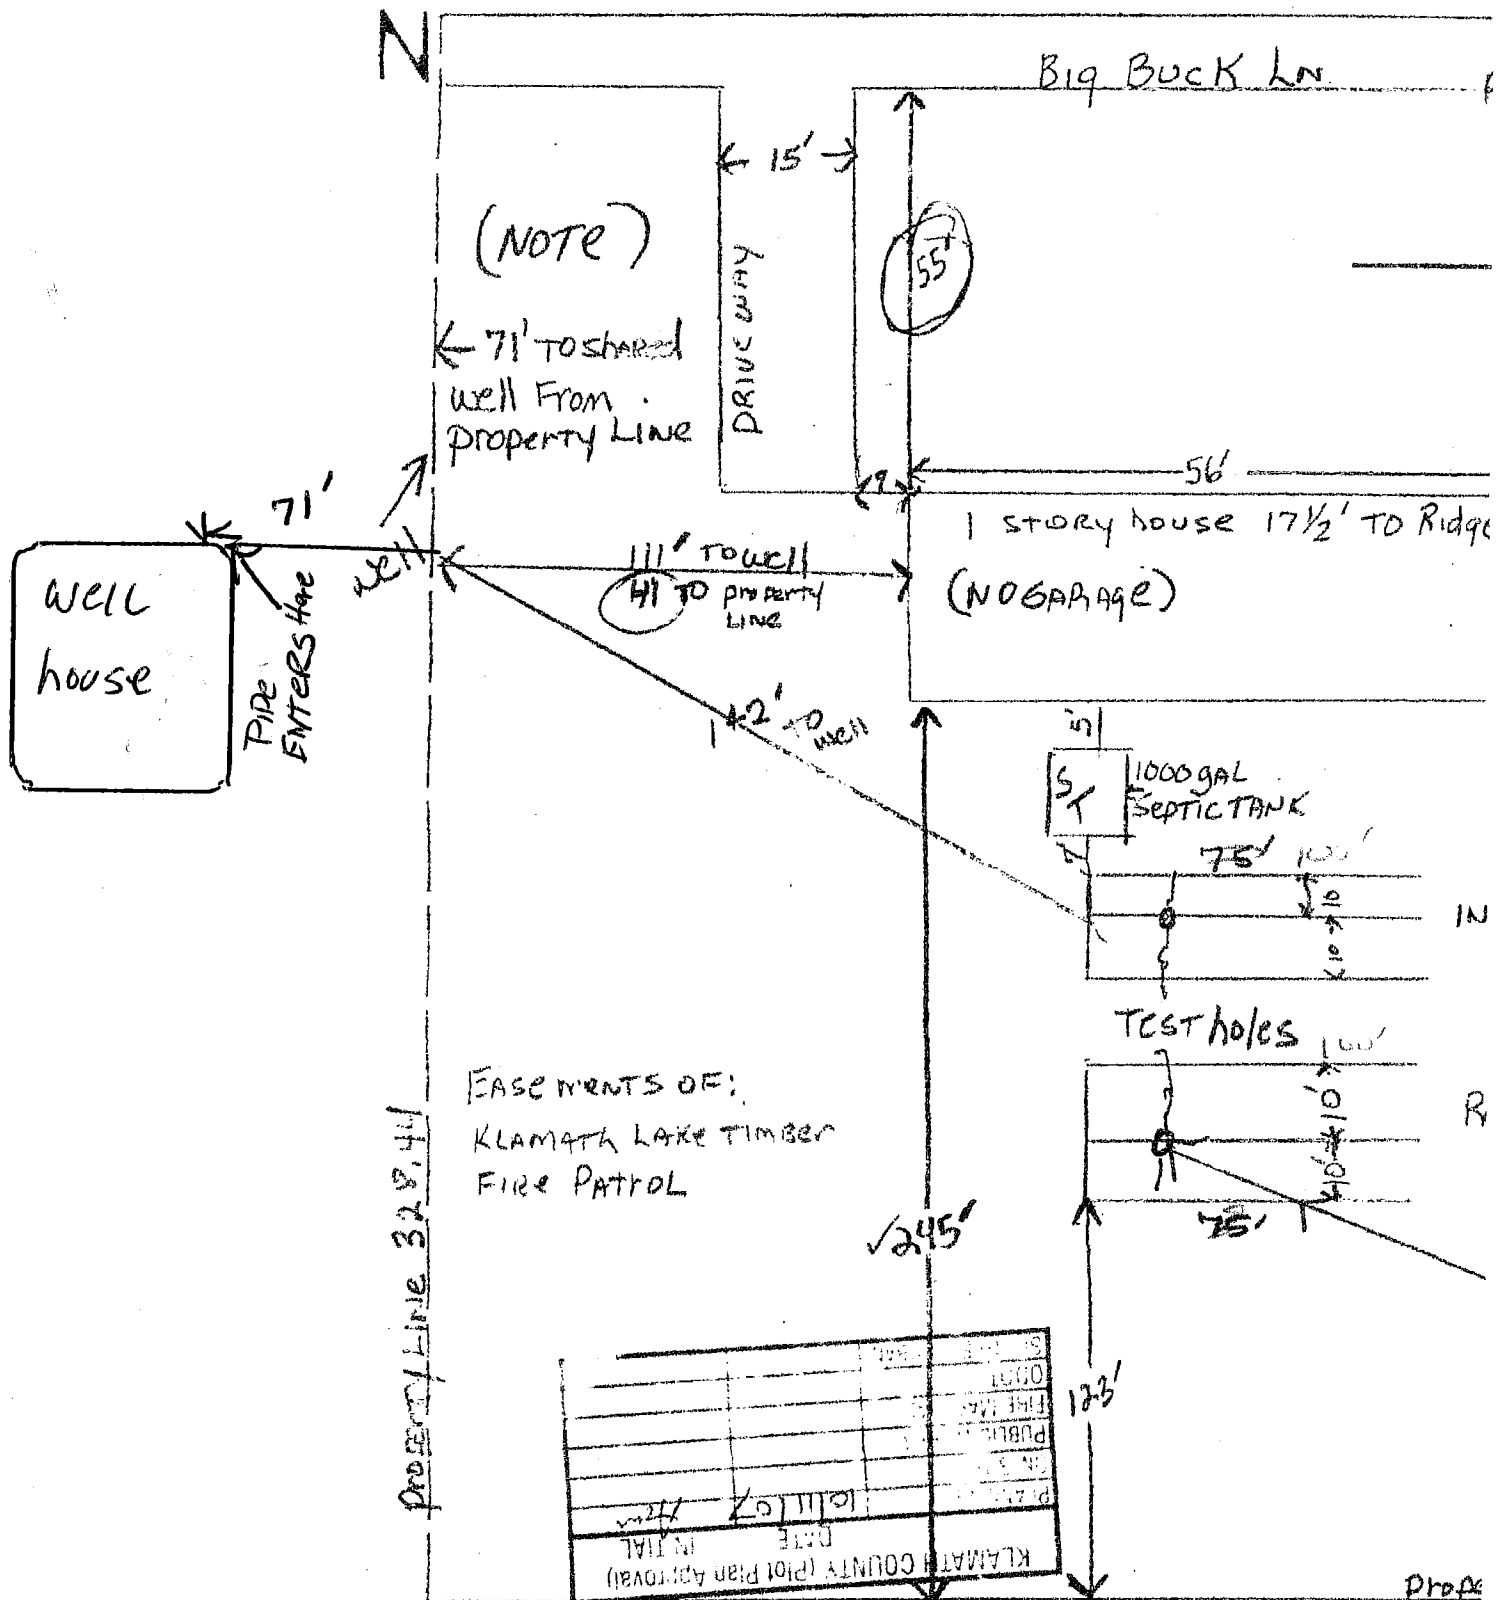 N
Big BUCK LN
15'
(NOTE)
55'
DRIVEWAY
← 71' TO shared
well From
property Line
56'
71'
well
1 STORY house 17½' TO Ridge
111' TO well
41 TO property
Line
(NO GARAGE)
well
house
PIPE
ENTERS Here
112' TO
well
5'
ST
1000 gAL
SEPTIC TANK
7
75' 100'
10
10
IN
TEST holes
100'
10'
10'
R
75'
EASEMENTS OF:
KLAMATH LAKE TIMBER
FIRE PATROL
Property Line 328.44
✓245'
123'
KLAMATH COUNTY (Plot Plan Approval)
DATE INITIAL
10/11/07
PUBLIC
FIRE MA
ODOT
Prope